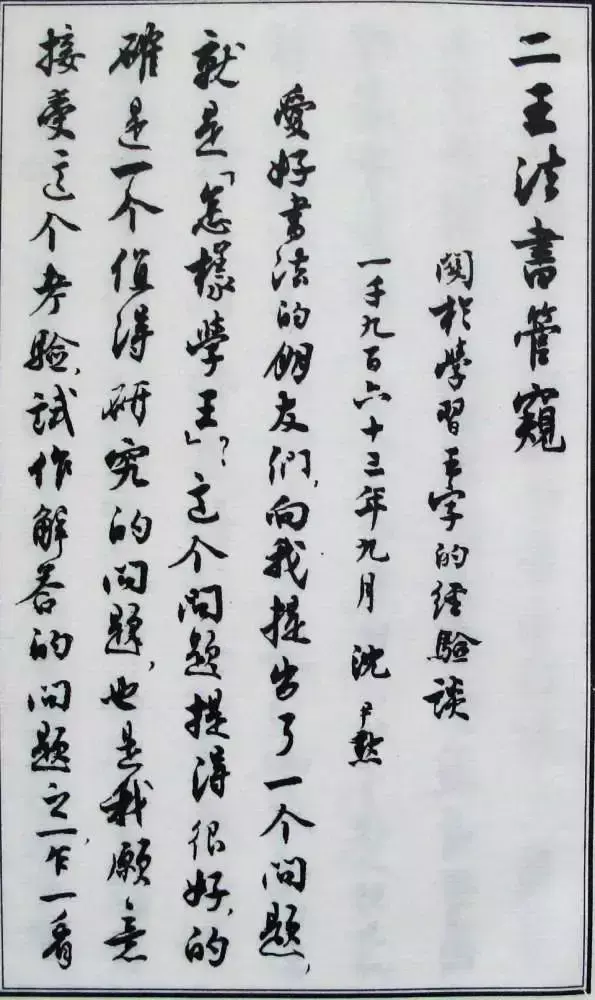 二王法書管窺
關於學習王字的經驗談
一千九百六十三年九月 沈尹默
愛好書法的朋友們，向我提出了一个问题，
就是「怎樣學王」？这个问题提得很好，的
確是一个值得研究的问题，也是我願意
接受这个考驗，试作解答的问题之一，乍一看